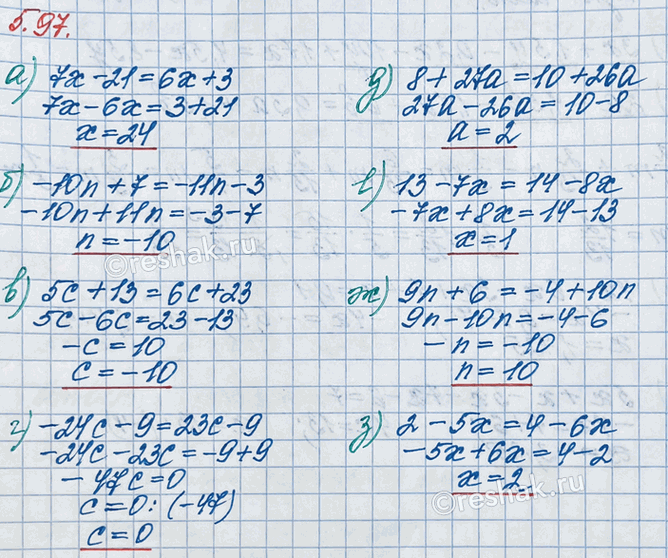 5.97.
а) 7x - 21 = 6x + 3
7x - 6x = 3 + 21
x = 24
б) -10n + 7 = -11n - 3
-10n + 11n = -3 - 7
n = -10
в) 5c + 13 = 6c + 23
5c - 6c = 23 - 13
-c = 10
c = -10
г) -24c - 9 = 23c - 9
-24c - 23c = -9 + 9
-47c = 0
c = 0 : (-47)
c = 0
д) 8 + 27a = 10 + 26a
27a - 26a = 10 - 8
a = 2
е) 13 - 7x = 14 - 8x
-7x + 8x = 14 - 13
x = 1
ж) 9n + 6 = -4 + 10n
9n - 10n = -4 - 6
-n = -10
n = 10
з) 2 - 5x = 4 - 6x
-5x + 6x = 4 - 2
x = 2
©reshak.ru
©reshak.ru